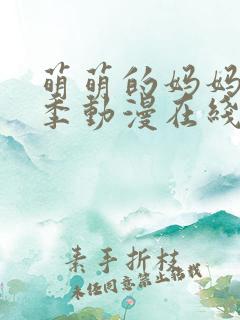 萌萌的妈妈
季動漫在綫
素手折枝
未经同意禁止转载